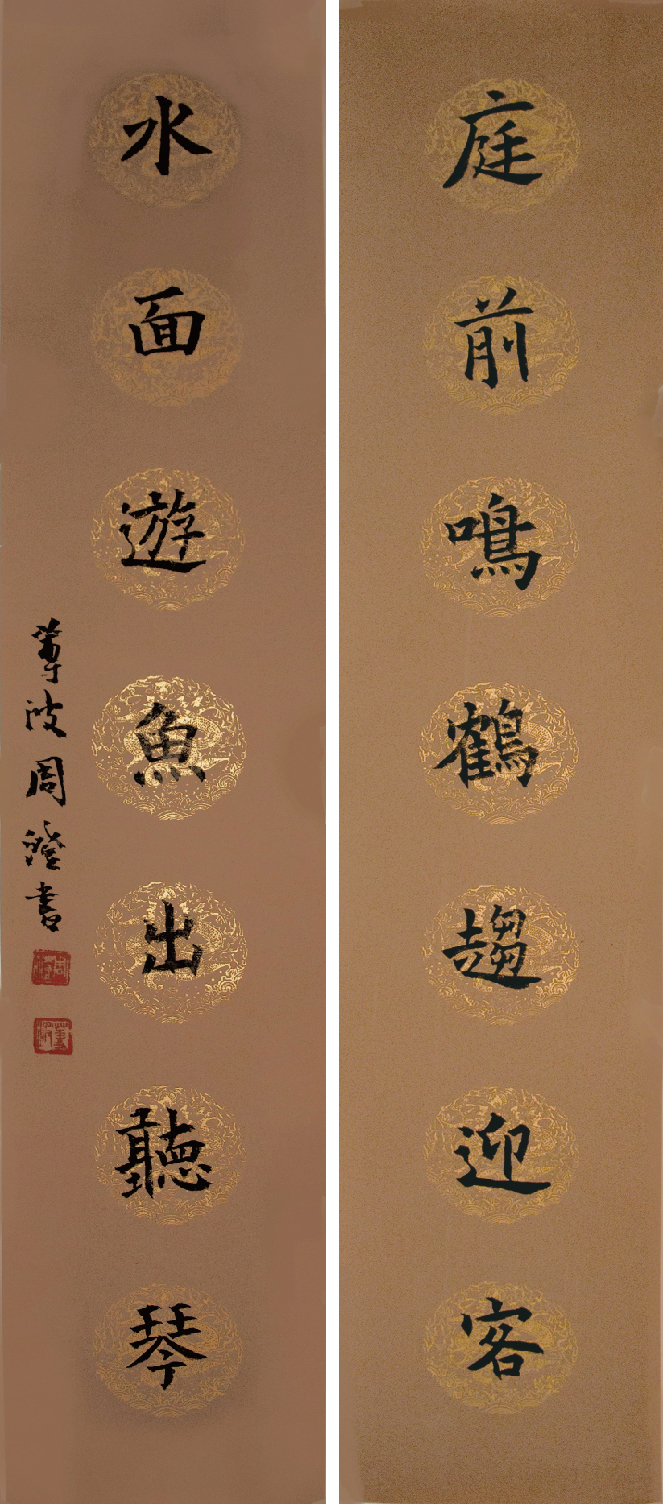 庭前鳴鶴趨迎客
水面遊魚出聽琴
蓴波周澄書